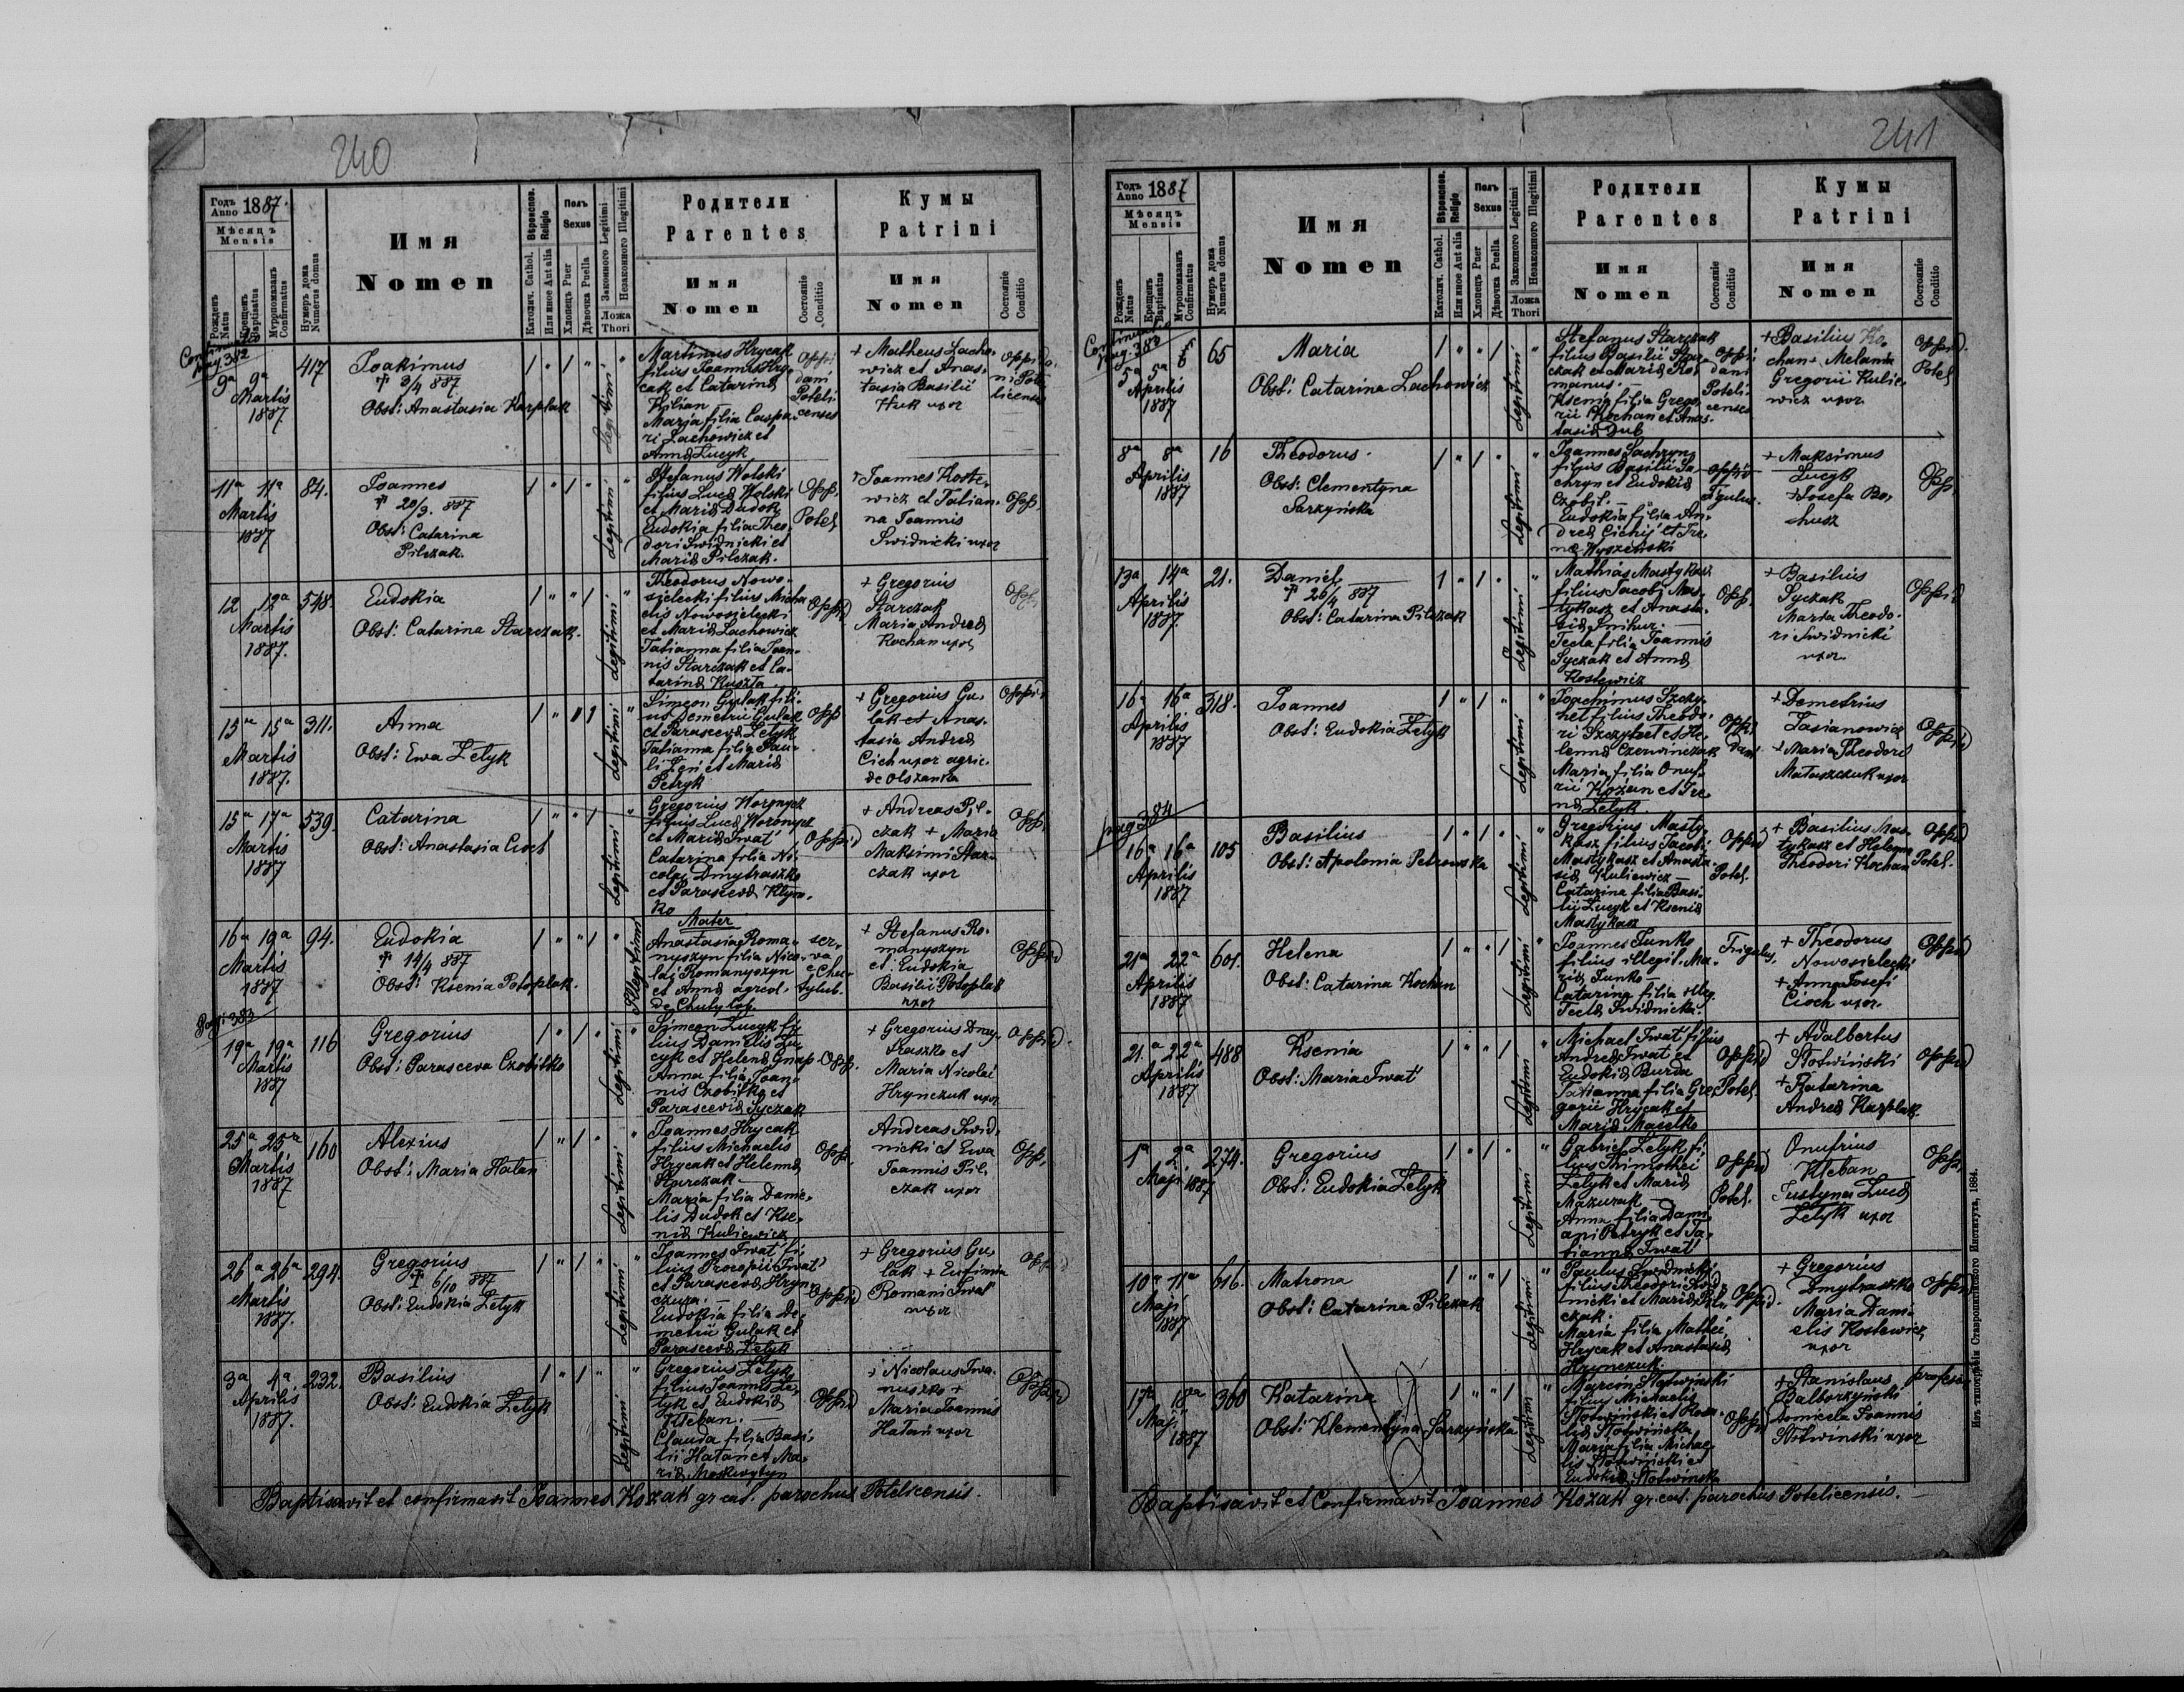 240
Годъ Anno 1887.
Мѣсяцъ Mensis
Рожденъ Natus
Крещенъ Baptisatus
Муропомазанъ Confirmatus
Нумеръ дома Numerus domus
Имя
Nomen
Вѣроиспов. Religio
Католич. Cathol.
Или иное Aut alia
Полъ Sexus
Хлопецъ Puer
Дѣвочка Puella
Законного Legitimi
Незаконного Illegitimi
Ложа Thori
Родители
Parentes
Имя
Nomen
Состояніе Conditio
Кумы
Patrini
Имя
Nomen
Состояніе Conditio
pag 382
9ª 9ª Martis 1887
417
Joakimus
† 3/4 887
Obst: Anastasia Karplak
Legitimi
Martinus Hrycak
filius Joannis Hry-
cak et Catarinæ
Kilian
Maria filia Caspa-
ri Lachowicz et
Annæ Lucyk
Oppi-
dani
Poteli-
censes
+ Matheus Lacho-
wicz et Anas-
tasia Basilii
Huk uxor
oppida-
ni Pote-
licenses
11ª 11ª Martis 1887
84.
Joannes
† 20/3. 887
Obst: Catarina
Pilczak.
Legitimi
Stefanus Wolski
filius Lucæ Wolski
et Mariæ Dudok
Eudokia filia Theo-
dori Swidnicki et
Mariæ Pilczak.
Opp.
Potel
+ Joannes Koste-
wicz et Tatian-
na Joannis
Swidnicki uxor
Opp.
12 12ª Martis 1887.
548.
Eudokia
Obst: Catarina Starczak.
Legitimi
Theodorus Nowo-
sielecki filius Micha-
elis Nowosielecki
et Mariæ Lachowicz
Tatianna filia Joan-
nis Starczak et Ca-
tarinæ Kuszta
Oppid
+ Gregorius
Starczak
Maria Andreæ
Kochan uxor
Opp.
15ª 15ª Martis 1887.
311.
Anna
Obst: Ewa Zełyk
Legitimi
Simeon Gulak fili-
us Demetrii Gulak
et Parascevæ Zełyk
Tatianna filia Pau-
li Zeń et Mariæ
Petryk
Opp
+ Gregorius Gu-
lak et Anas-
tasia Andreæ
Cich uxor agric.
de Olszanka
Oppi-
15ª 17ª Martis 1887
539.
Catarina
Obst: Anastasia Cioch
Legitimi
Gregorius Woronyck
filius Lucæ Woronyck
et Mariæ Iwat'
Catarina filia Ni-
colai Dmytraszko
et Parascevæ Klym-
ko
Oppid
+ Andreas Pil-
czak + Maria
Maksimi Star-
czak uxor
Opp.
16ª 19ª Martis 1887
94.
Eudokia
† 14/4 887
Obst: Ksenia Potoplak.
Illegitimi
Mater
Anastasia Roma-
nyszyn filia Nico-
lai Romanyszyn
et Annæ agricol.
ser-
va
+ Stefanus Ro-
manyszyn
et Eudokia
Basilii Potoplak
uxor
Oppid
Pagi 383
19ª 19ª Martis 1887
116
Gregorius
Obst: Parasceva Czobitko
Legitimi
Simeon Lucyk fi-
lius Danielis Lu-
cyk et Helenæ Gnap
Anna filia Joan-
nis Czobitko et
Parascevæ Syczak
Opp.
+ Gregorius Dmy-
traszko et
Maria Nicolai
Hrynczuk uxor
Oppid.
25ª 25ª Martis 1887
160
Alexius
Obst: Maria Hatan
Legitimi
Joannes Hrycak
filius Michaelis
Hrycak et Helenæ
Starczak —
Maria filia Danie-
lis Dudok et Kse-
niæ Kuliewicz
Opp.
Andreas Swid-
nicki et Ewa
Joannis Pil-
czak uxor
Opp.
26ª 26ª Martis 1887.
294.
Gregorius
† 6/10 887
Obst: Eudokia Zełyk
Legitimi
Joannes Iwat' fi-
lius Procopii Iwat'
et Parascevæ Hryn-
czuk.
Eudokia filia De-
metrii Gulak et
Parascevæ Zełyk
Oppid
+ Gregorius Gu-
lak + Eufimia
Romani Iwat'
uxor
Oppid
3ª 4ª Aprilis 1887.
232.
Basilius
Obst: Eudokia Zełyk
Legitimi
Gregorius Zełyk
filius Joannis Ze-
łyk et Eudokiæ
Kleban. —
Clauda filia Basi-
lii Hatan et Ma-
riæ Moskwytyn
Oppid
+ Nicolaus Iwa-
nuszko +
Maria Joannis
Hatan uxor
Oppid
Baptisavit et confirmavit Joannes Kozak gr. cat. parochus Potelicensis.
241
Годъ Anno 1887
Мѣсяцъ Mensis
Рожденъ Natus
Крещенъ Baptisatus
Муропомазанъ Confirmatus
Нумеръ дома Numerus domus
Имя
Nomen
Вѣроиспов. Religio
Католич. Cathol.
Или иное Aut alia
Полъ Sexus
Хлопецъ Puer
Дѣвочка Puella
Законного Legitimi
Незаконного Illegitimi
Ложа Thori
Родители
Parentes
Имя
Nomen
Состояніе Conditio
Кумы
Patrini
Имя
Nomen
Состояніе Conditio
pag. 383
5ª 5ª Aprilis 1887
65
Maria
Obst: Catarina Lachowicz
Legitimi
Stefanus Starczak
filius Basilii Star-
czak et Mariæ Ro-
manus. —
Ksenia filia Grego-
rii Kochan et Anas-
tasiæ Dub
Oppi
dani
Poteli-
censes
+ Basilius Ko-
chan + Melania
Gregorii Kulie-
wicz uxor
Oppid.
Potel
8ª 8ª Aprilis 1887
16
Theodorus
Obst: Clementyna
Sarzyńska
Legitimi
Joannes Sachryn
filius Basilii Sa-
chryn et Eudokiæ
Czobit. —
Eudokia filia An-
dreæ Cichij et Ire-
næ Wyszeński
Oppid
Figulus.
+ Maksimus
Lucyk
+ Josefa Bo-
husz
Opp.
13ª 14ª Aprilis 1887.
21.
Daniel
† 26/4 887
Obst: Catarina Pilczak
Legitimi
Mathias Mastykasz
filius Jacobi Mas-
tykasz et Anasta-
siæ Snihur. —
Tecla filia Joannis
Syczak et Annæ
Kostewicz
Opp.
+ Basilius
Syczak
Maria Theodo-
ri Swidnicki
uxor
Oppid
16ª 16ª Aprilis 1887
318.
Joannes
Obst: Eudokia Zełyk
Legitimi
Joachimus Szczy-
het filius Theodo-
ri Szczyhet et He-
lennæ Czerwinczak
Maria filia Onuf-
rii Kozan et Ire-
næ Zełyk
Oppi
dan
+ Demetrius
Zasianowicz
+ Maria Theodori
Mataszczuk uxor
Oppid
pag 384
16ª 16ª Aprilis 1887
105
Basilius
Obst: Apolonia Petrowska
Legitimi
Gregorius Masty-
kasz filius Jacobi
Mastykasz et Anasta-
siæ Kuliewicz —
Catarina filia Basi-
lii Lucyk et Kseniæ
Mastykasz
Oppid
Potel.
+ Basilius Mas-
tykasz et Helena
Theodori Kochan
Oppid
Potel.
21ª 22ª Aprilis 1887
601.
Helena
Obst: Catarina Kochan
Legitimi
Joannes Funko
filius illegit. Ma-
riæ Funko —
Catarina filia illeg.
Teclæ Swidnicka.
Figulus,
+ Theodorus
Nowosielecki
+ Anna Josefi
Cioch uxor.
Oppid
21.ª 22ª Aprilis 1887
488
Ksenia
Obst: Maria Iwat'
Legitimi
Michael Iwat' filius
Andreæ Iwat' et
Eudokiæ Burda
Tatianna filia Gre-
gorii Hrycak et
Mariæ Maselko
Oppid
Potel.
+ Adalbertus
Słotwiński
+ Katarina
Andreæ Karplak
Oppid
1ª 2ª Maji 1887
274.
Gregorius
Obst: Eudokia Zełyk
Legitimi
Gabriel Zełyk fi-
lius Thimothei
Zełyk et Mariæ
Mazurak —
Anna filia Dami-
ani Petryk et Ta-
tiannæ Iwat'
Oppid
Potel.
Onufrius
Kleban
Justyna Lucæ
Zełyk uxor
Opp.
10ª 11ª Maji 1887
616.
Matrona
Obst: Catarina Pilczak
Legitimi
Paulus Swidnicki
filius Theodori Swid-
nicki et Mariæ Pil-
czak.
Maria filia Mathei
Hrycak et Anastasiæ
Hrynczuk.
Oppid.
+ Gregorius
Dmytraszko
Maria Dani-
elis Kostewicz
uxor
Oppid
17ª 18ª Maji 1887
360
Katarina
Obst: Klementyna Sarzyńska
Legitimi
Marcin Słotwiński
filius Michaelis
Słotwiński et Rosa-
liæ Słotwińska
Maria filia Michae-
lis Słotwiński et
Eudokiæ Słotwińska
Oppid
+ Stanislaus
Balborzyński
Domicela Joannis
Słotwinski uxor
profesor
Baptisavit et Confirmavit Joannes Kozak gr. cat. parochus Potelicensis. —
Изъ типографіи Ставропигійского Института, 1884.